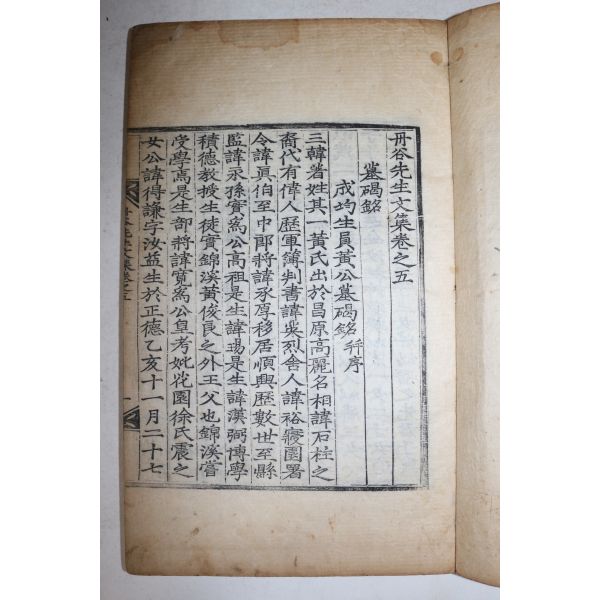 丹谷先生文集卷之五
墓碣銘
成均生員黃公墓碣銘 幷序
三韓著姓其一黃氏出於昌原高麗名相諱石柱之
裔代有偉人歷軍簿判書諱吳烈舍人諱裕寢園署
令諱眞伯至中郎將諱承厚移居順興歷數世至縣
監諱永孫實爲公高祖是生諱瑒是生諱漢弼博學
積德敎授生徒實錦溪黃俊良之外王父也錦溪嘗
受學焉是生部將諱寬爲公皇考妣花園徐氏震之
女公諱得謙字汝益生於正德乙亥十一月二十七
丹谷先生文集卷之五